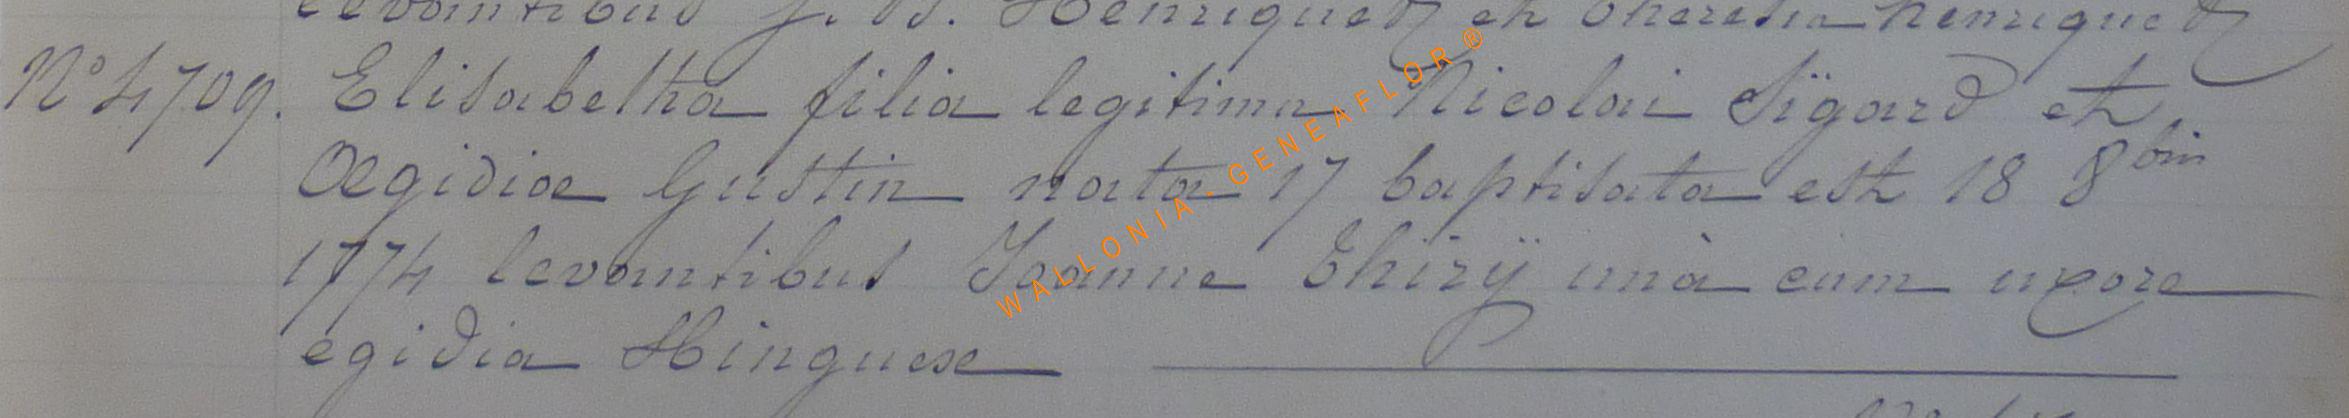 levantibus J. B. Henriquez et theresia henriquez
N° 4709. Elisabetha filia legitima Nicolai Sÿgard et
Œgidiœ Gustin nata 17 baptisata est 18 8bris
1774 levantibus Joanne Thirÿ unà cum uxore
egidia Hinguese
WALLONIA - GENEAFLOR ®